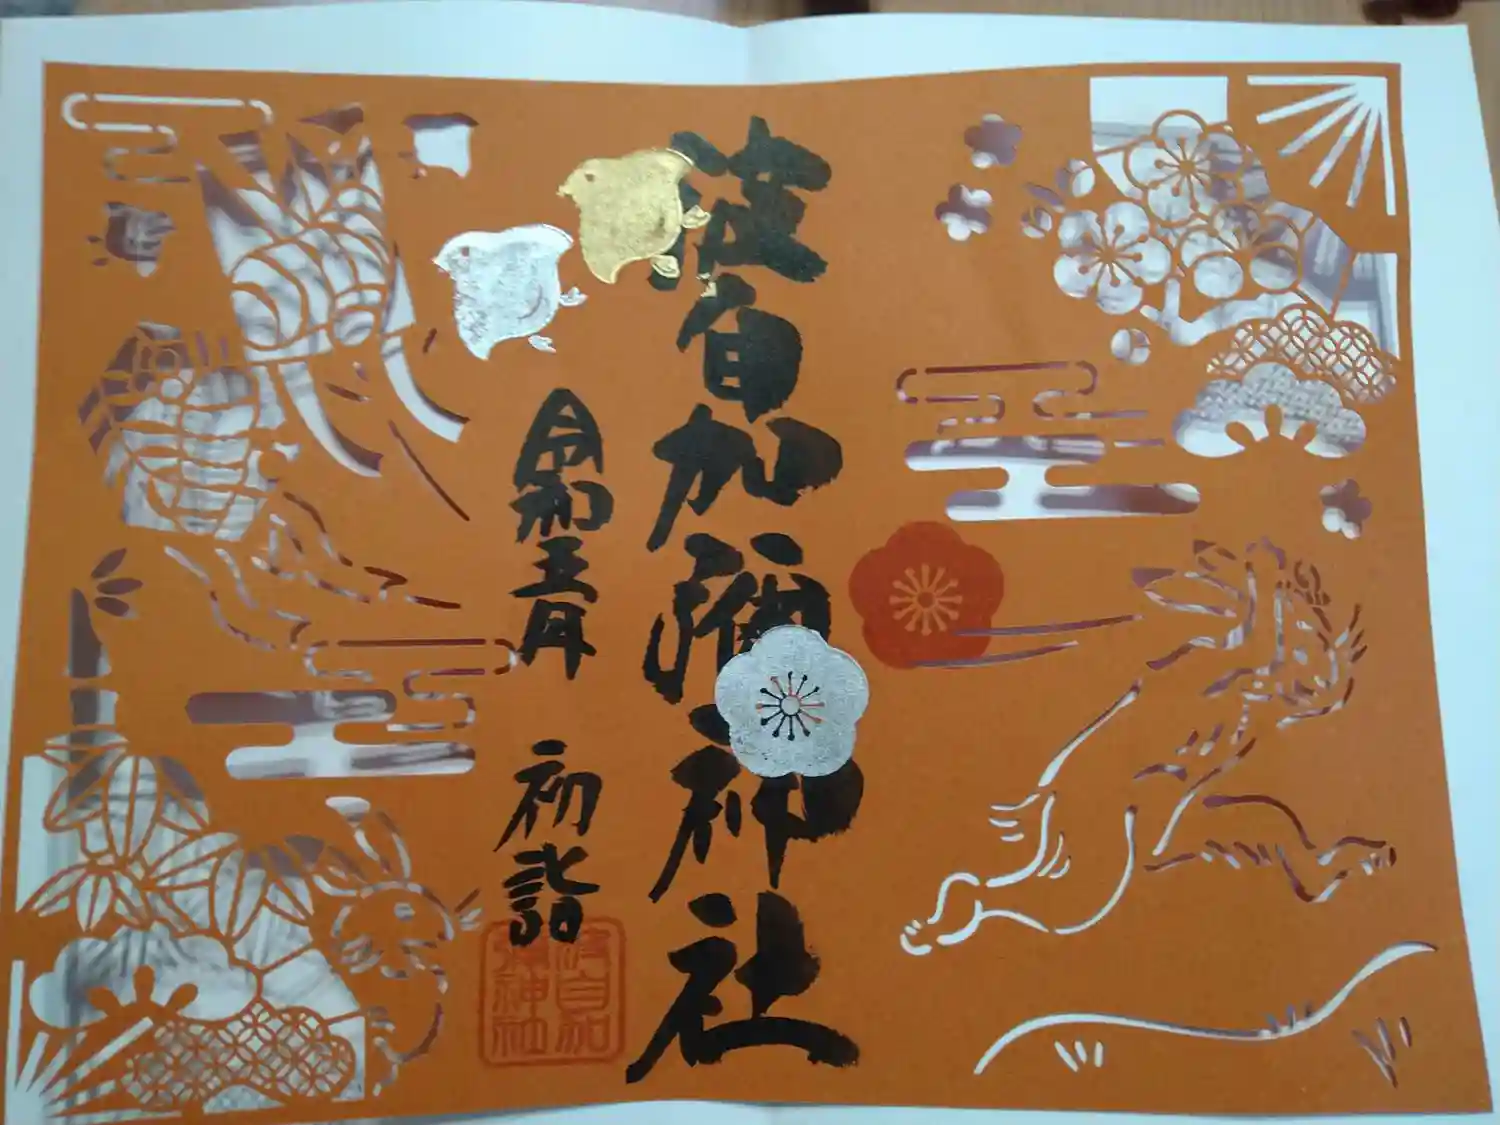 波自加彌神社
令和五年 初詣
波自加
彌神社